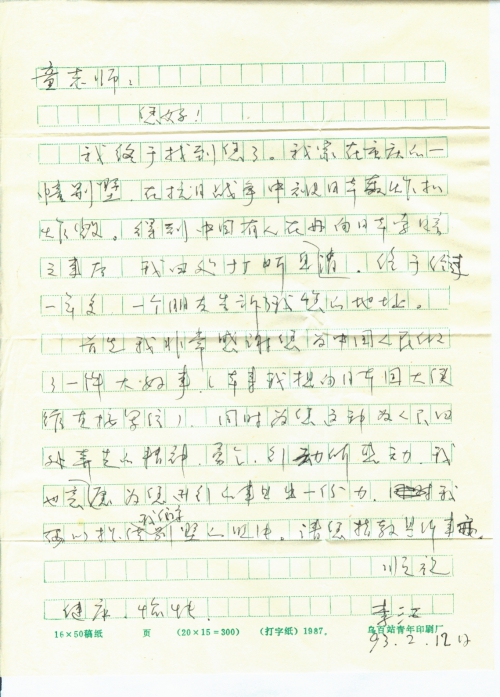 童志师：
您好！
我终于找到您了。我家在重庆的一
幢别墅，在抗日战争中被日本轰炸机
炸毁。得到中国有人在册向日本索赔
之事后 我四处打听消，终于经过
一年多，一个朋友告诉我您的地址。
首先我非常感谢您为中国人民做
了一件大好事（本事我想向日本国大使
馆直接写信），同时为您这种为人民
精神，所感动，我
也愿为您进行的事出一份力，我
可以提供我们家别墅的证据。请您指教
顺祝
健康、愉快
李
93.2.12日
16×50稿纸 页 （20×15=300） （打字纸）1987. 乌百站青年印刷厂